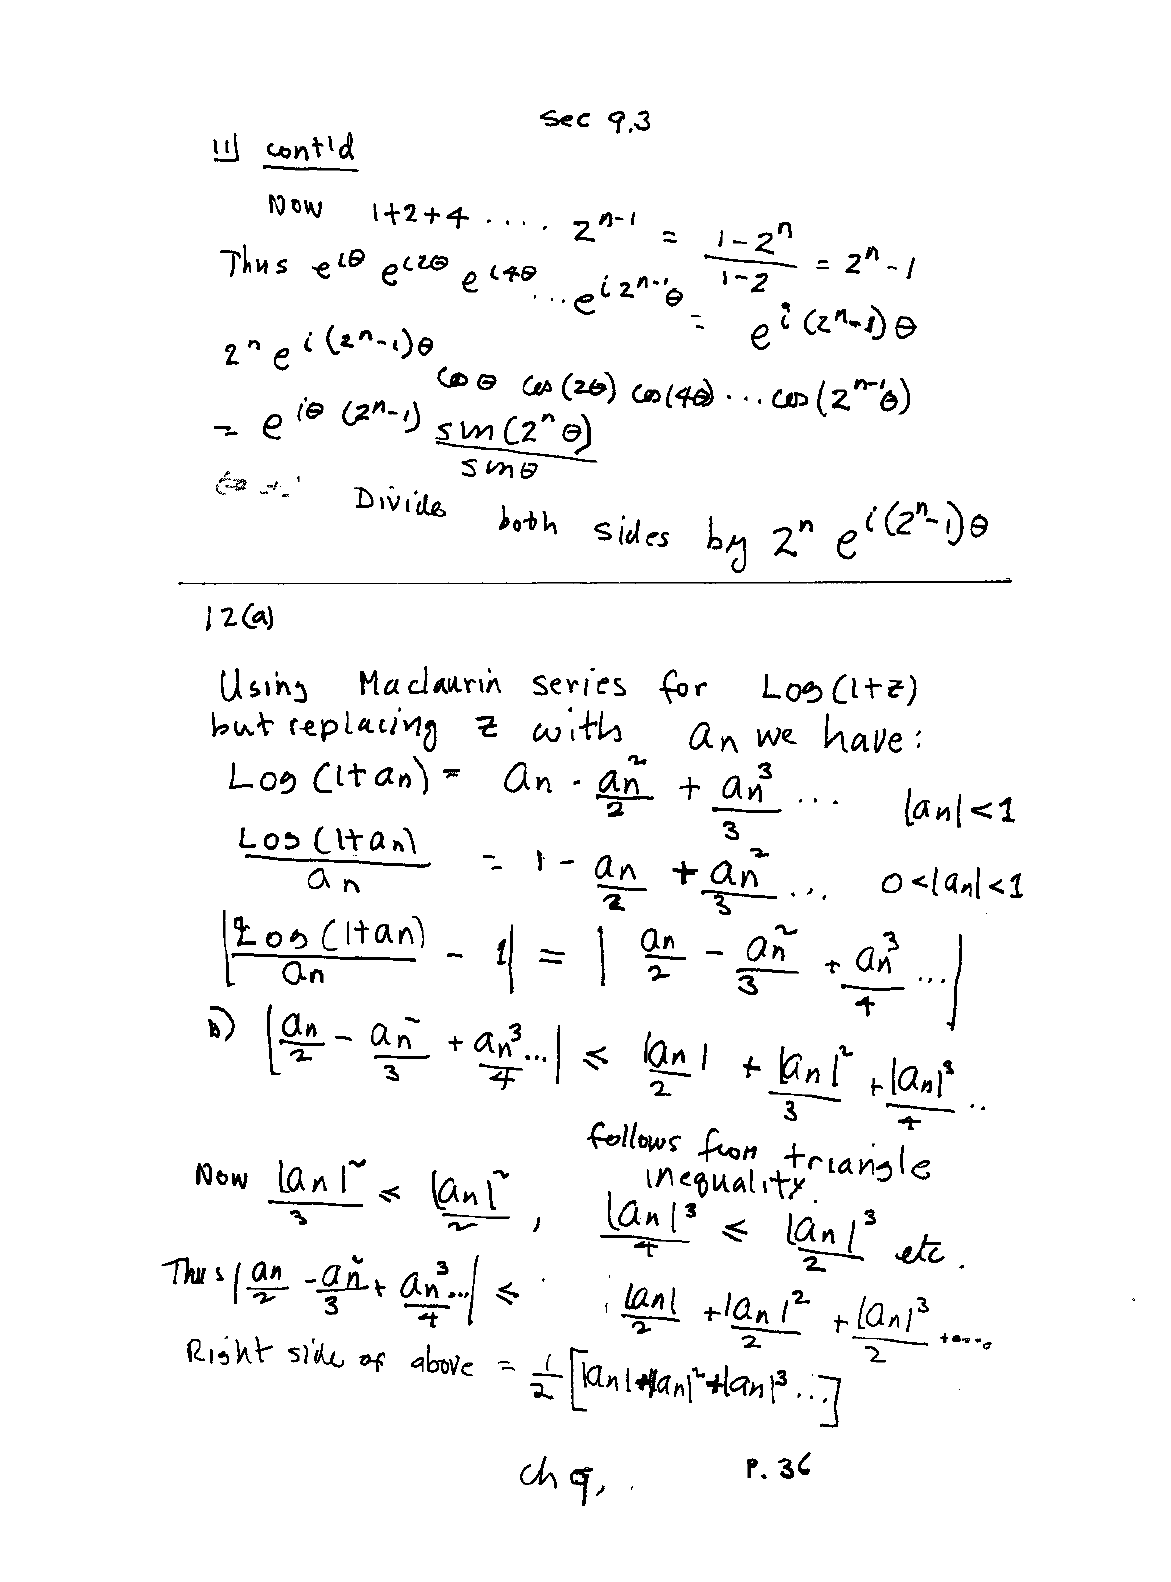 Sec 9.3
11) cont'd
Now 1+2+4 .... 2^{n-1} = \frac{1-2^n}{1-2} = 2^n - 1
Thus e^{iθ} e^{i2θ} e^{i4θ} ... e^{i2^{n-1}θ} = e^{i(2^n-1)θ}
2^n e^{i(2^n-1)θ} cos θ cos(2θ) cos(4θ) ... cos(2^{n-1}θ)
= e^{iθ(2^n-1)} \frac{sin(2^nθ)}{sinθ}
Divide both sides by 2^n e^{i(2^n-1)θ}
12(a)
Using Maclaurin series for Log(1+z)
but replacing z with an we have:
Log(1+an) = an - \frac{an^2}{2} + \frac{an^3}{3} ... |an|<1
\frac{Log(1+an)}{an} = 1 - \frac{an}{2} + \frac{an^2}{3} ... 0<|an|<1
|\frac{Log(1+an)}{an} - 1| = |\frac{an}{2} - \frac{an^2}{3} + \frac{an^3}{4} ...|
b) |\frac{an}{2} - \frac{an^2}{3} + \frac{an^3}{4} ...| ≤ \frac{|an|}{2} + \frac{|an|^2}{3} + \frac{|an|^3}{4} ..
follows from triangle
inequality.
Now \frac{|an|^2}{3} ≤ \frac{|an|^2}{2}, \frac{|an|^3}{4} ≤ \frac{|an|^3}{2} etc.
Thus |\frac{an}{2} - \frac{an^2}{3} + \frac{an^3}{4} ...| ≤ \frac{|an|}{2} + \frac{|an|^2}{2} + \frac{|an|^3}{2} + ....
Right side of above = \frac{1}{2} [|an| + |an|^2 + |an|^3 ...]
ch 9, P. 36